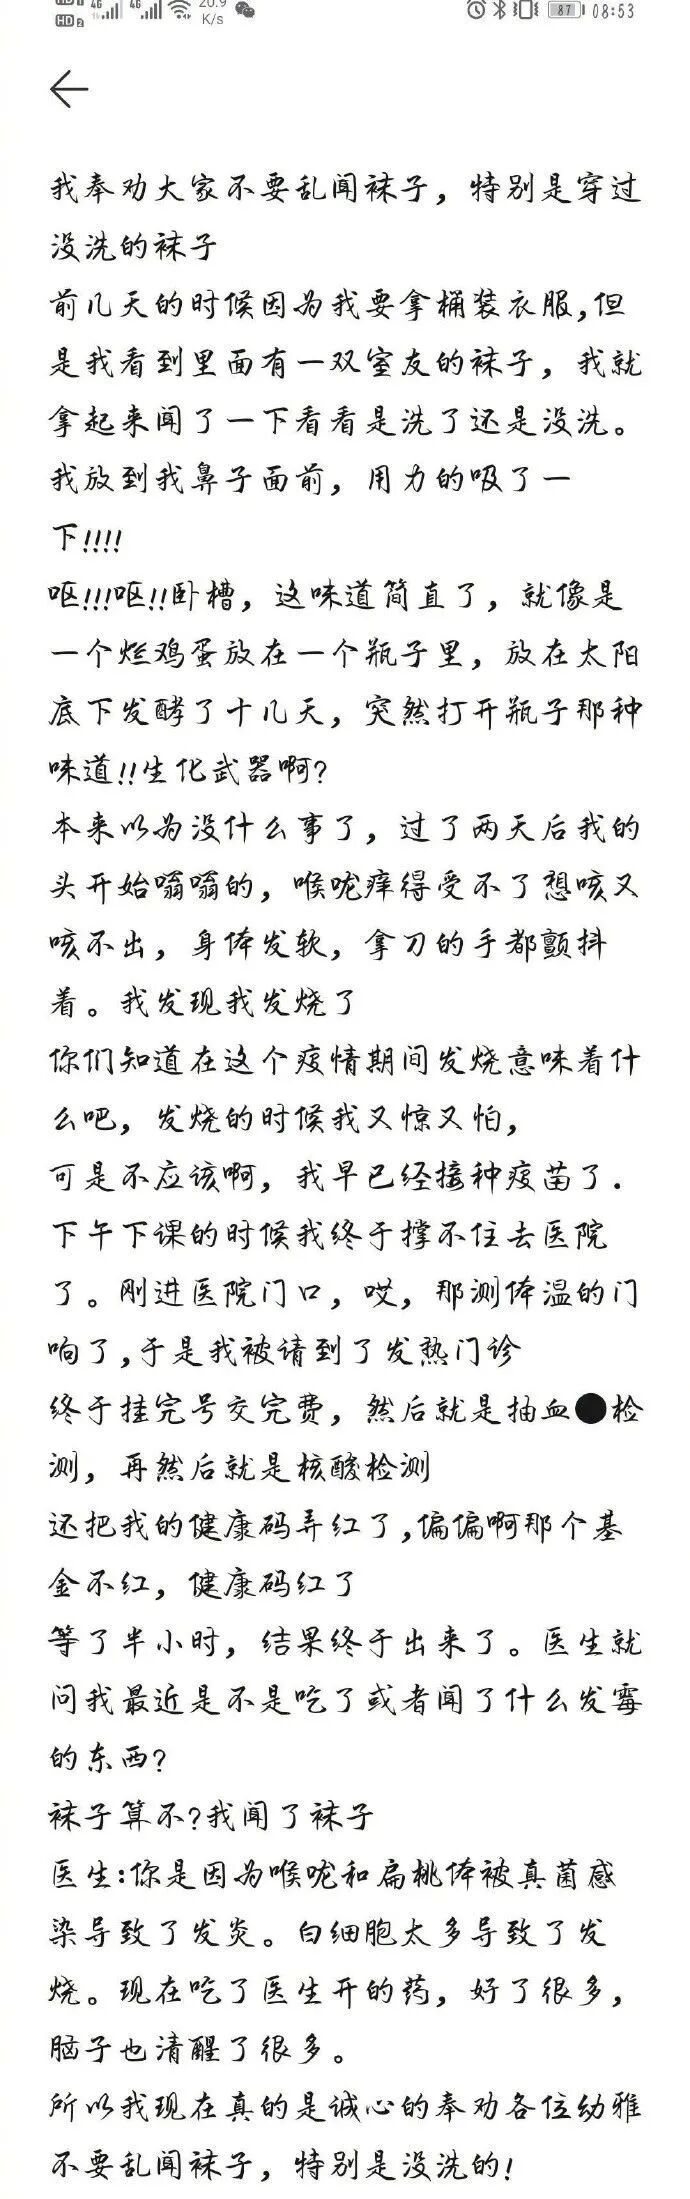 HD 1 4G 4G 20.9 K/s 87 08:53
HD 2
我奉劝大家不要乱闻袜子，特别是穿过
没洗的袜子
前几天的时候因为我要拿桶装衣服,但
是我看到里面有一双室友的袜子，我就
拿起来闻了一下看看是洗了还是没洗。
我放到我鼻子面前，用力的吸了一
下!!!!
呕!!!呕!!卧槽，这味道简直了，就像是
一个烂鸡蛋放在一个瓶子里，放在太阳
底下发酵了十几天，突然打开瓶子那种
味道!!生化武器啊?
本来以为没什么事了，过了两天后我的
头开始嗡嗡的，喉咙痒得受不了想咳又
咳不出，身体发软，拿刀的手都颤抖
着。我发现我发烧了
你们知道在这个疫情期间发烧意味着什
么吧，发烧的时候我又惊又怕，
可是不应该啊，我早已经接种疫苗了.
下午下课的时候我终于撑不住去医院
了。刚进医院门口，哎，那测体温的门
响了,于是我被请到了发热门诊
终于挂完号交完费，然后就是抽血●检
测，再然后就是核酸检测
还把我的健康码弄红了,偏偏啊那个基
金不红，健康码红了
等了半小时，结果终于出来了。医生就
问我最近是不是吃了或者闻了什么发霉
的东西?
袜子算不?我闻了袜子
医生:你是因为喉咙和扁桃体被真菌感
染导致了发炎。白细胞太多导致了发
烧。现在吃了医生开的药，好了很多，
脑子也清醒了很多。
所以我现在真的是诚心的奉劝各位幼雅
不要乱闻袜子，特别是没洗的!